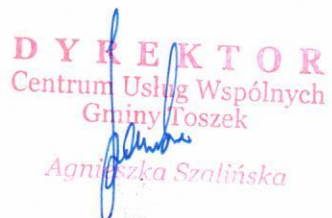 DYREKTOR
Centrum Usług Wspólnych
Gminy Toszek
Agnieszka Szalińska